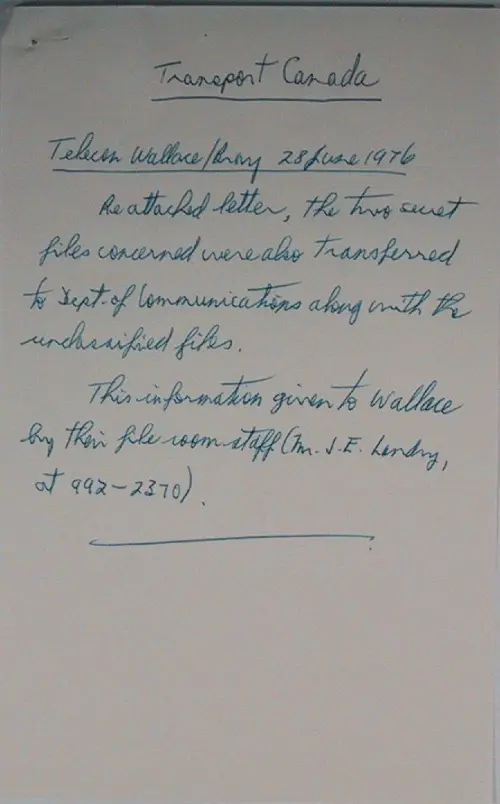 Transport Canada
Telecon Wallace/ 28 June 1976
Re attached letter, the two secret
files concerned were also transferred
to Dept. of Communications along with the
unclassified files.
This information given to Wallace
by their file room staff (Mr. J.E. Landry,
at 992-2370).